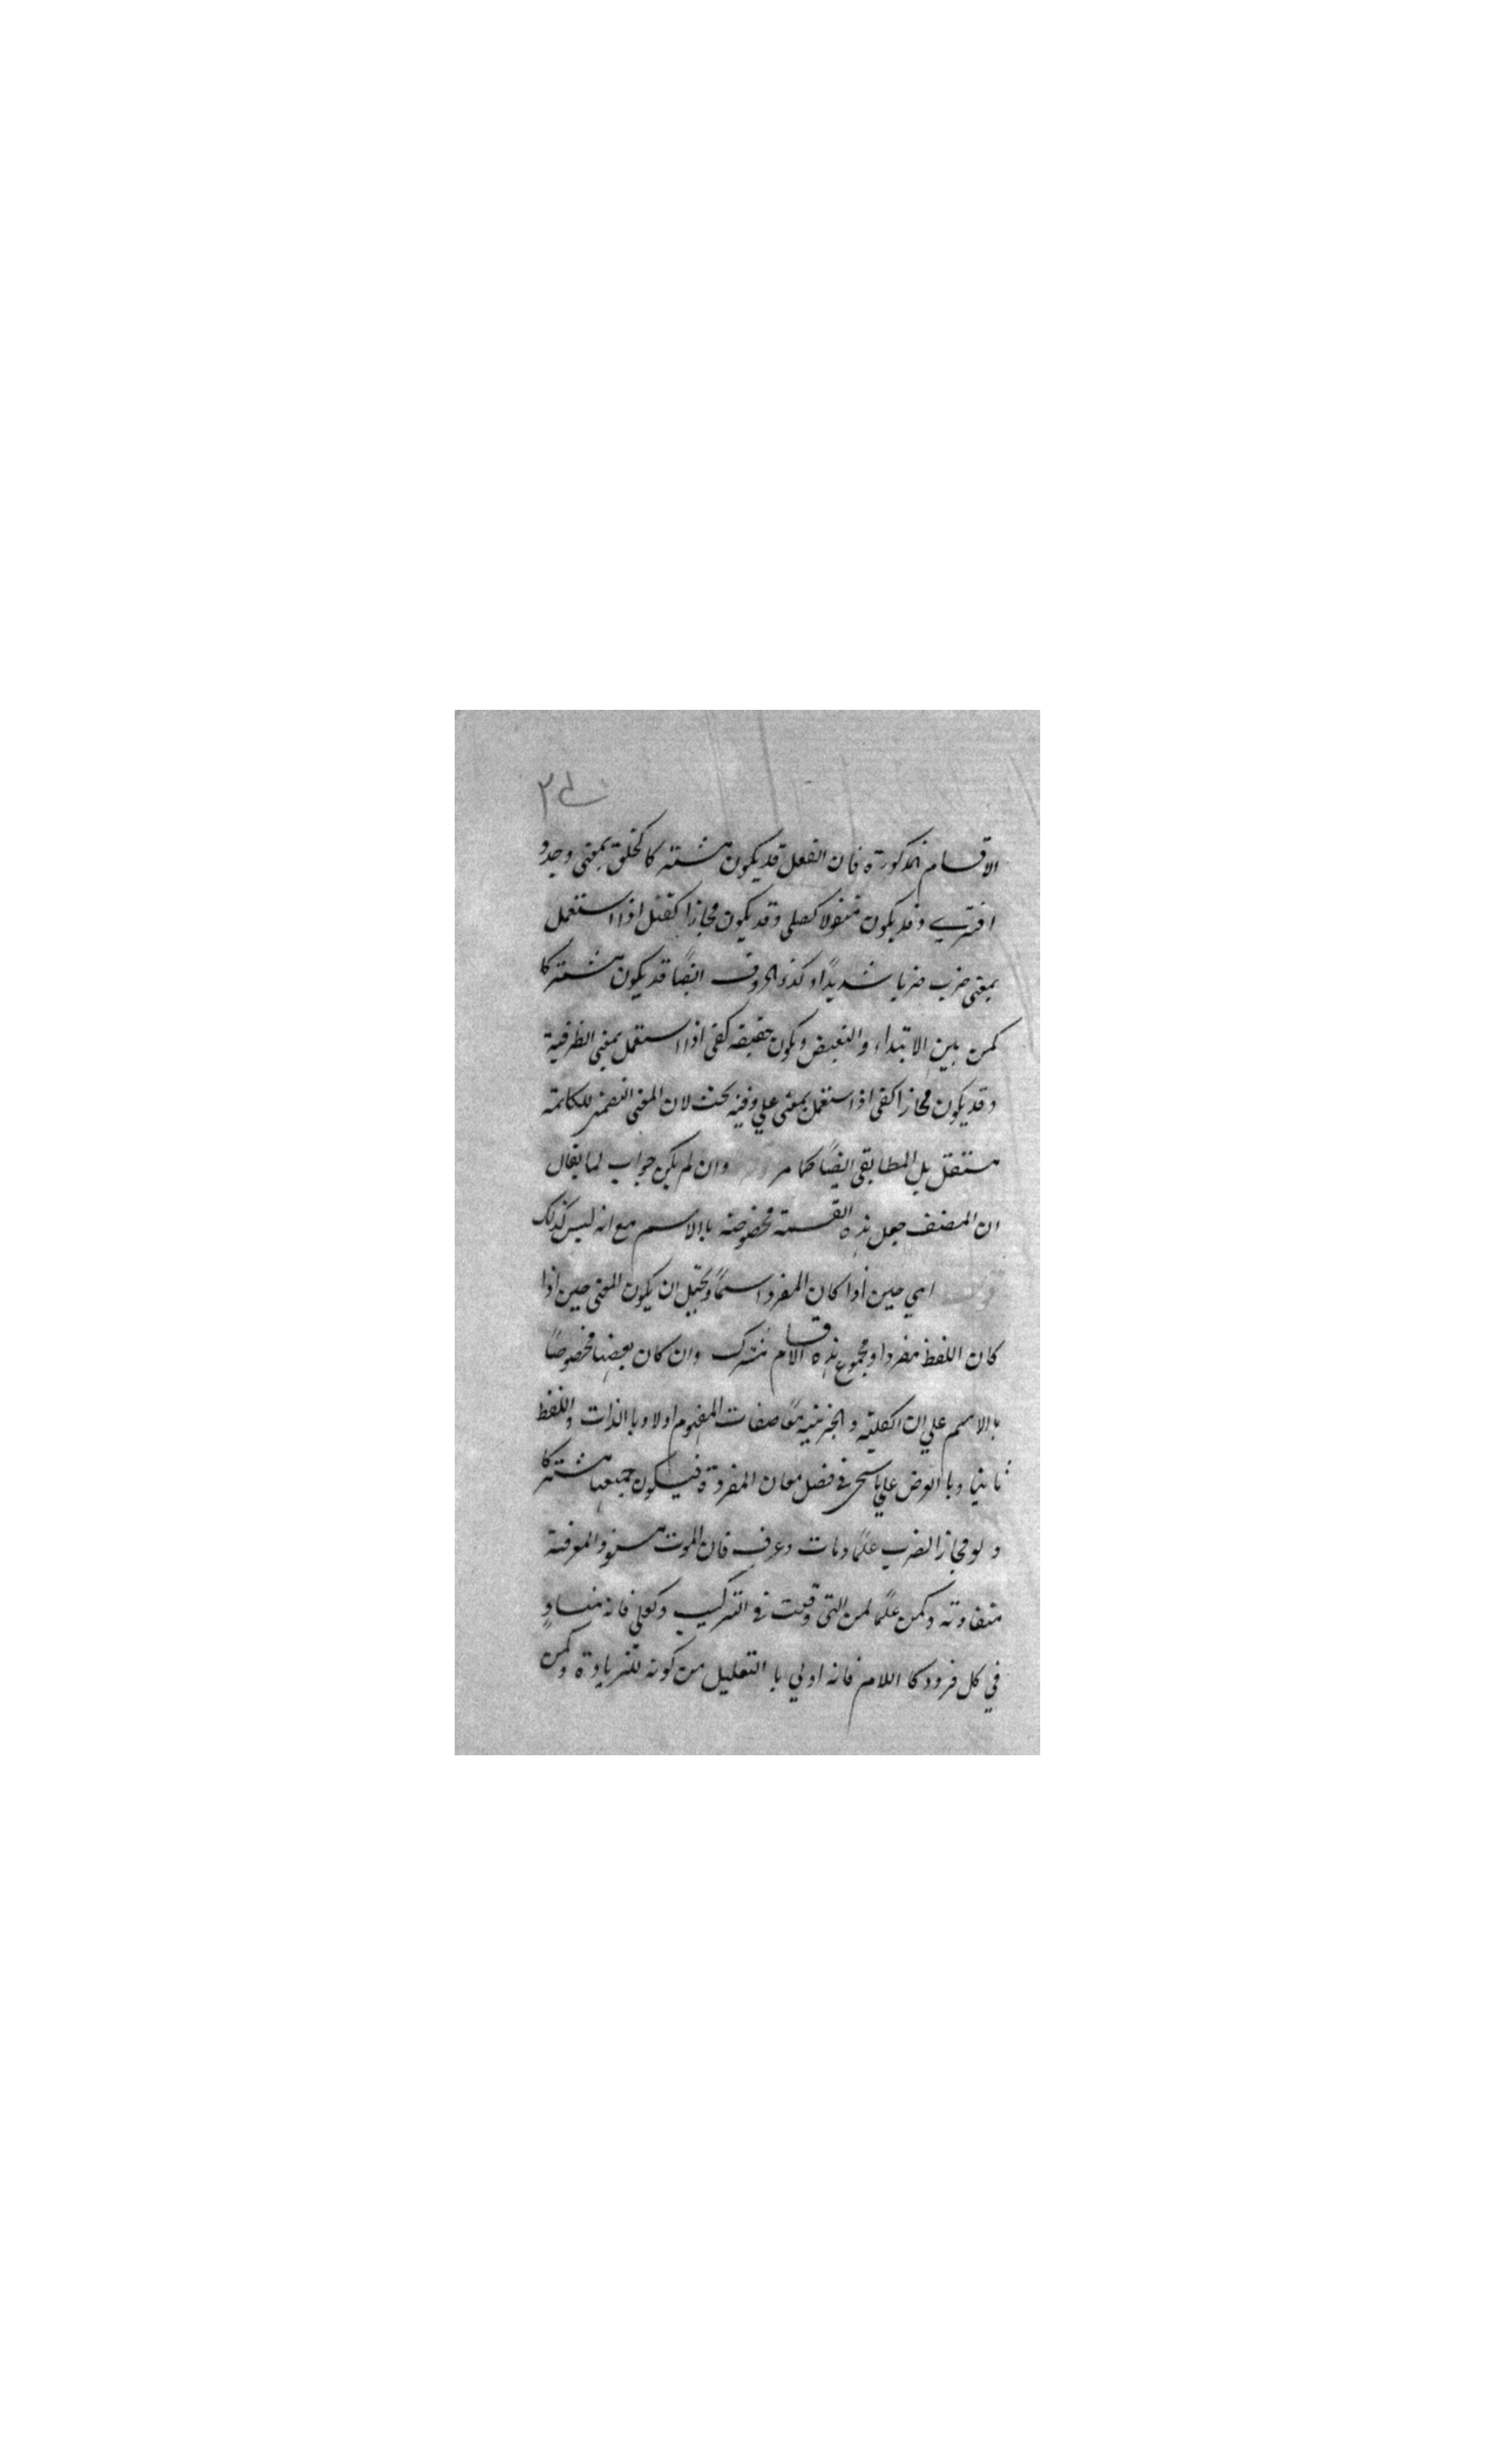 الاقسام المذكورة فان الفعل قد يكون مشتركا كخلق بمعنى وجد و
افترى وقد يكون منقولا كصلى وقد يكون مجازا كقتل اذا استعمل
بمعنى ضرب ضربا شديدًا وكذا الحروف ايضًا قد يكون مشتركا
كمن بين الابتداء والتبعيض ويكون حقيقة كفى اذا استعمل بمعنى الظرفية
وقد يكون مجازا كفى اذا استعمل بمعنى علي وفيه بحث لان المعنى التضمنى للكلمة
مستقل بل المطابقى ايضًا كما مر وان لم يكن جواب لما يقال
ان المصنف جعل هذه القسمة مخصوصة بالاسم مع انه ليس كذلك
اي حين اذا كان المفرد اسمًا ويحتمل ان يكون المعنى حين اذا
كان اللفظ مفردا ومجموع هذه الاقسام مشترك وان كان بعضها مخصوصًا
بالاسم علي ان الكلية والجزئية معًا صفات المفهوم اولا وبالذات واللفظ
ثانيا وبالعرض علي ما سيجى في فصل معان المفردة فيكون جميعها مشتركا
ولو مجازا لضرب علمًا ومات وعرف فان الموت والمعرفة
متفاوته وكمن علمًا لمن التى وقعت في التركيب وكعلى فانه متساوٍ
في كل فرد وكا اللام فانه اولي با التعليل من كونه للزيادة وكمن